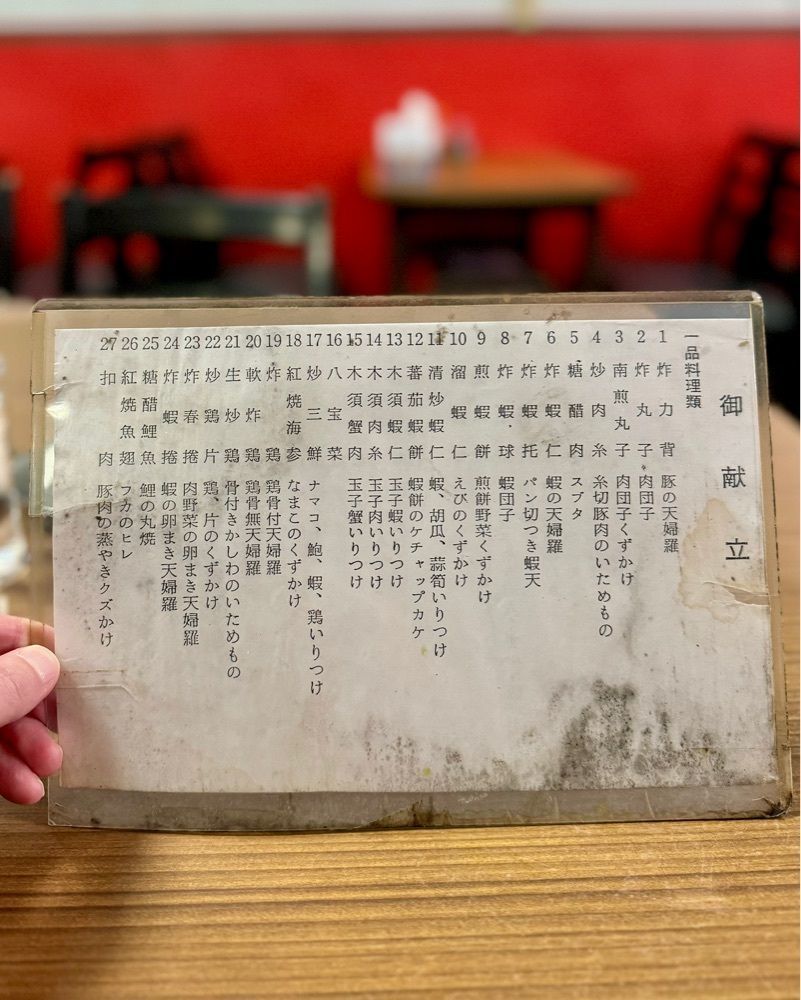 御献立
一品料理類
1 炸力背 豚の天婦羅
2 炸丸子 肉団子
3 南煎丸子 肉団子くずかけ
4 炒肉糸 糸切豚肉のいためもの
5 糖醋肉 スブタ
6 炸蝦仁 蝦の天婦羅
7 炸蝦托 パン切つき蝦天
8 炸蝦球 蝦団子
9 煎蝦餅 煎餅野菜くずかけ
10 溜蝦仁 えびのくずかけ
11 清炒蝦仁 蝦、胡瓜、蒜筍いりつけ
12 蕃茄蝦餅 蝦餅のケチャップカケ
13 木須蝦仁 玉子蝦いりつけ
14 木須肉糸 玉子肉いりつけ
15 木須蟹肉 玉子蟹いりつけ
16 八宝菜
17 炒三鮮 ナマコ、鮑、蝦、鶏いりつけ
18 紅焼海参 なまこのくずかけ
19 炸鶏 鶏骨付天婦羅
20 軟炸鶏 鶏骨無天婦羅
21 生炒鶏 骨付きかしわのいためもの
22 炒鶏片 鶏、片のくずかけ
23 炸春捲 肉野菜の卵まき天婦羅
24 炸蝦捲 蝦の卵まき天婦羅
25 糖醋鯉魚 鯉の丸焼
26 紅焼魚翅 フカのヒレ
27 扣肉 豚肉の蒸やきクズかけ